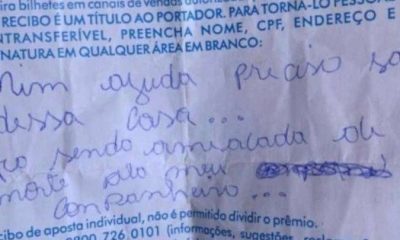 ra bilhetes em canais de vendas
RECIBO É UM TÍTULO AO PORTADOR. PARA TORNÁ-LO PESSOAL
NTRANSFERÍVEL, PREENCHA NOME, CPF, ENDEREÇO E
NATURA EM QUALQUER ÁREA EM BRANCO:
mim ajuda preciso sa
dessa casa...
sendo ameaçada de
morte pelo meu
companheiro...
cibo de aposta individual, não é permitido dividir o prêmio.
0800 726 0101 (informações, sugestões,